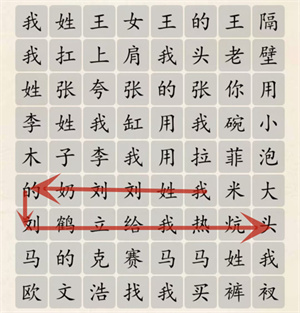 我姓王女王的王隔
我扛上肩我头老壁
姓张夸张的张你用
李姓我缸用我碗小
木子李我用拉菲泡
的奶刘刘姓我米大
刘鹤立给我热炕头
马的克赛马马姓我
欧文浩找我买裤衩